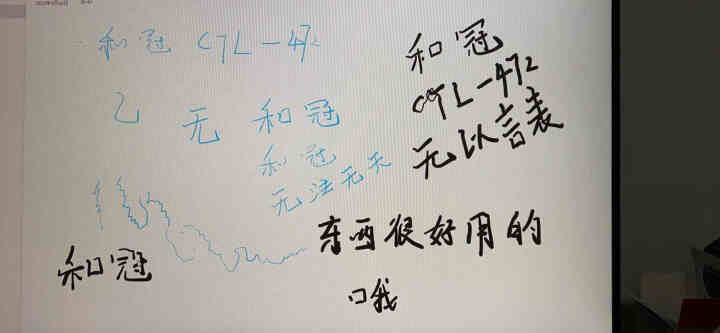 和冠 CTL-472
乙 无 和冠
和冠
无法无天
和冠
和冠
CTL-472
无以言表
东西很好用的
哦